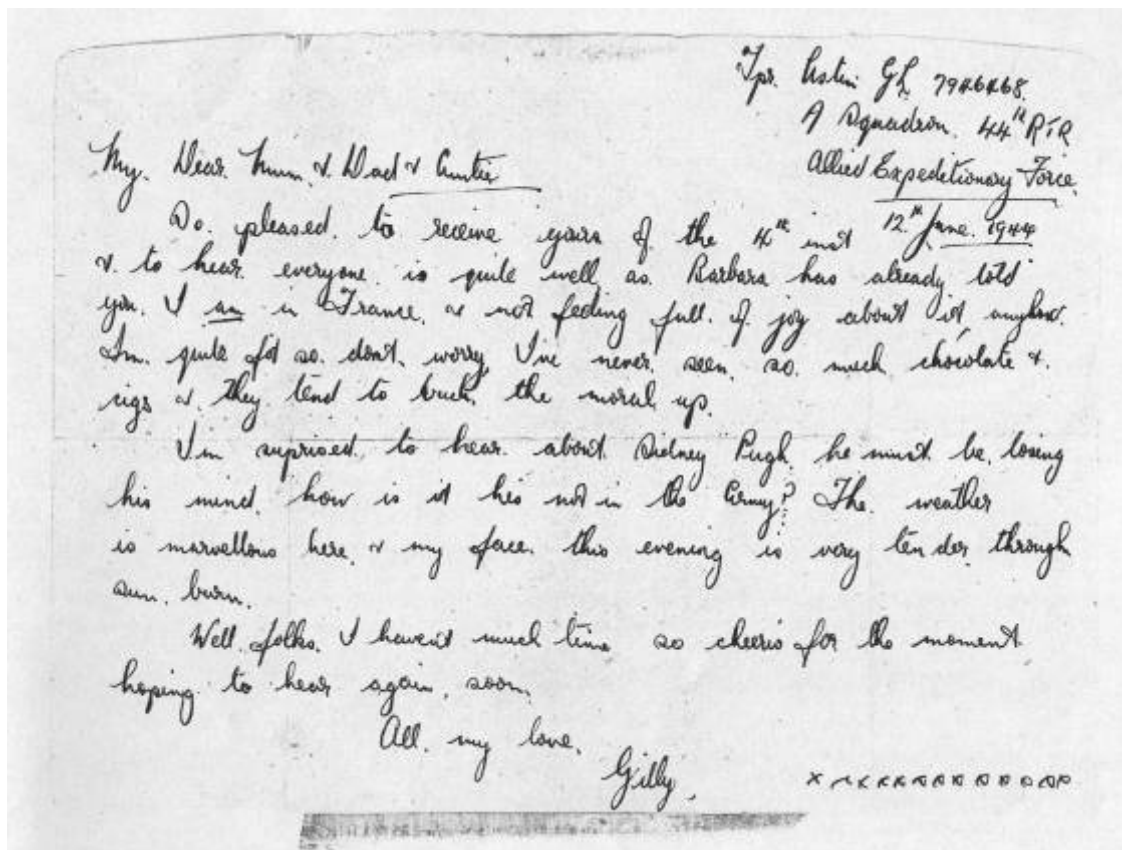 Tpr. GL. 7946468.
A Squadron. 44th RTR
Allied Expeditionary Force.
12th June. 1944
My. Dear. Mum. & Dad & Auntie
So. pleased. to receive yours of the 4th inst
& to hear. everyone. is quite well, as Barbara has already told
you. I am in France. & not feeling full. of joy about it anyhow.
Im. quite fit so. don't. worry. I've never seen. so. much chocolate &
cigs & they tend to buck. the moral up.
I'm suprised. to hear. about Sidney Pugh. he must be. losing
his mind. how is it hes not in the Army? The. weather
is marvellous here & my face. this evening is very tender through
sun. burn.
Well folks. I havent much time so cheerio for the moment
hoping to hear again, soon.
All. my love.
Gilly.
x x x x x x x x x x x x